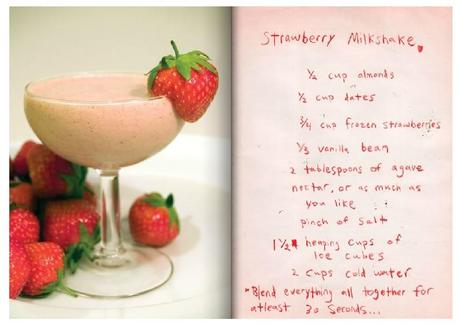 Strawberry Milkshake.
½ cup almonds
½ cup dates
¾ cup frozen strawberries
⅓ vanilla bean
2 tablespoons of agave
nectar, or as much as
you like
pinch of salt
1½ heaping cups of
Ice cubes
2 cups cold water
*Blend everything all together for
atleast 30 seconds...